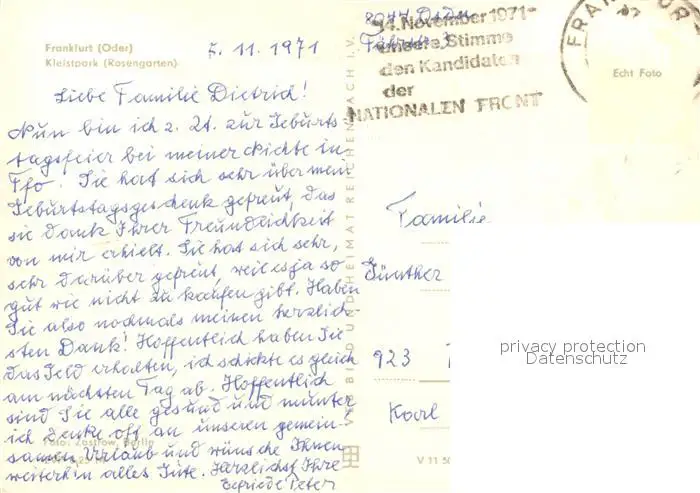 Frankfurt (Oder)
Kleistpark (Rosengarten)
5. 11. 1971
Liebe Familie Dietrich!
Nun bin ich z. Zt. zur Geburts-
tagsfeier bei meiner Nichte in
Ffo. Sie hat sich sehr über mein
Geburtstagsgeschenk gefreut, das
sie dank Ihrer Freundlichkeit
von mir erhielt. Sie hat sich sehr,
sehr darüber gefreut, weil es ja so
gut wie nicht zu kaufen gibt. Haben
Sie also nochmals meinen herzlich-
sten Dank! Hoffentlich haben Sie
das Geld erhalten, ich schickte es gleich
am nächsten Tag ab. Hoffentlich
sind Sie alle gesund und munter
ich denke oft an unseren gemein-
samen Urlaub und wünsche Ihnen
weiterhin alles Gute. Herzlichst Ihre
Peter
Foto: Zastrow, Berlin
VERLAG BILD UND HEIMAT REICHENBACH I. V.
14. November 1971-
unsere Stimme
den Kandidaten
der
NATIONALEN FRONT
FRANKFUR
Echt Foto
Familie
Günther
923
Karl
V 11 50
privacy protection
Datenschutz